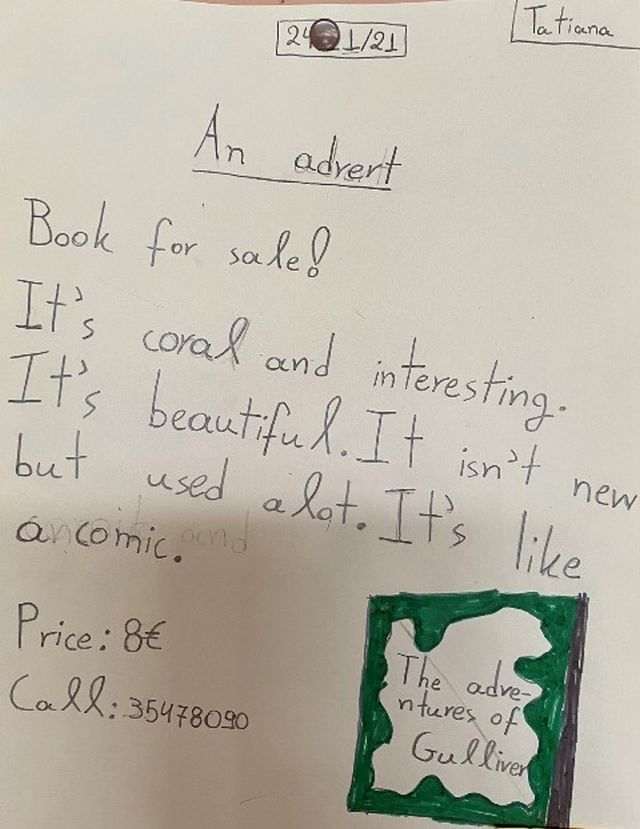 Tatiana
1/21
An advert
Book for sale!
It's coral and interesting.
It's beautiful. It isn't new
but used a lot. It's like
a comic.
Price: 8€
Call: 35478090
The adve-
ntures of
Gulliver